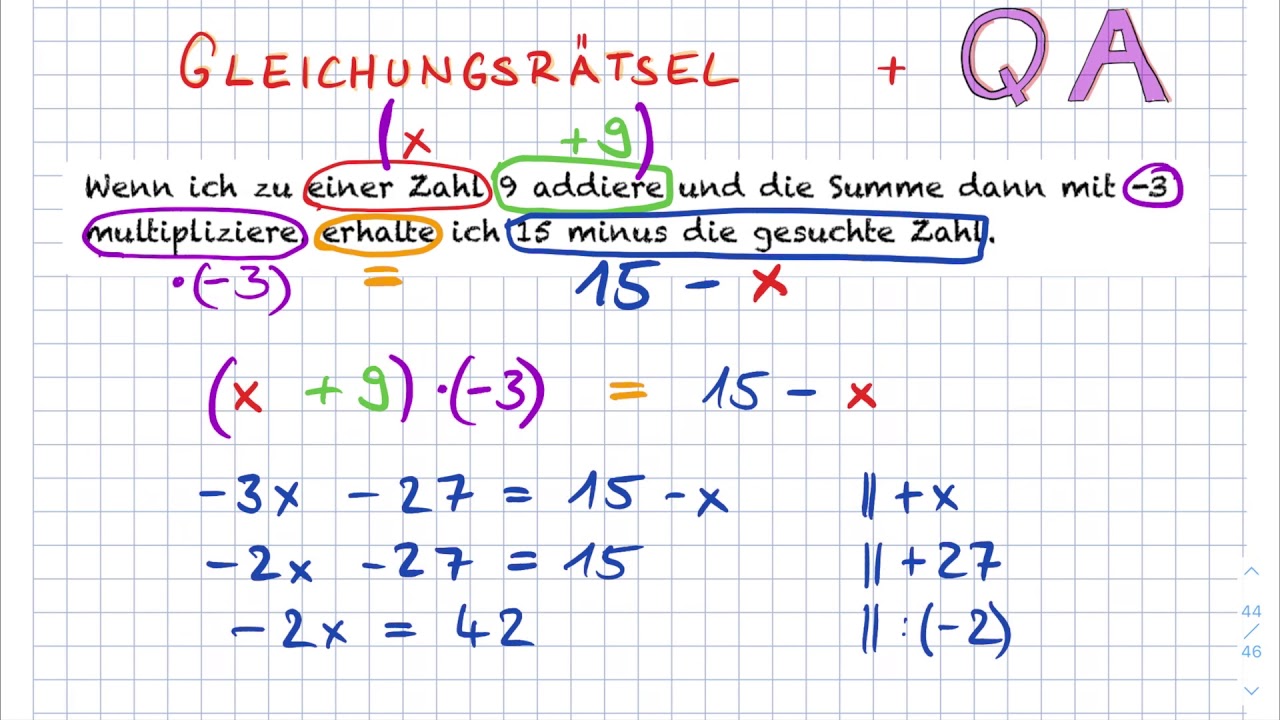 GLEICHUNGSRÄTSEL + QA
(x +9)
Wenn ich zu einer Zahl 9 addiere und die Summe dann mit -3
multipliziere, erhalte ich 15 minus die gesuchte Zahl.
·(-3) = 15 - x
(x +9) ·(-3) = 15 - x
-3x -27 = 15 -x || +x
-2x -27 = 15 || +27
-2x = 42 || :(-2)
44
/
46